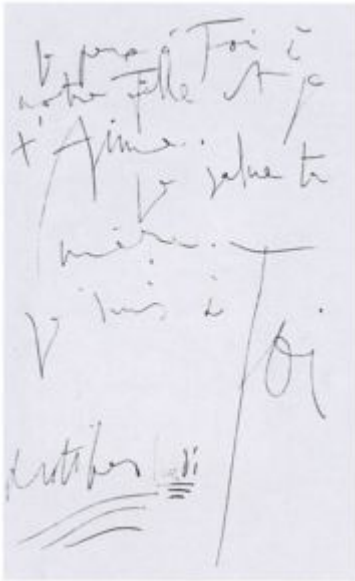 Je pense à Toi à
notre fille et je
t'Aime.
Je salue ta
mère.
Je suis à Toi